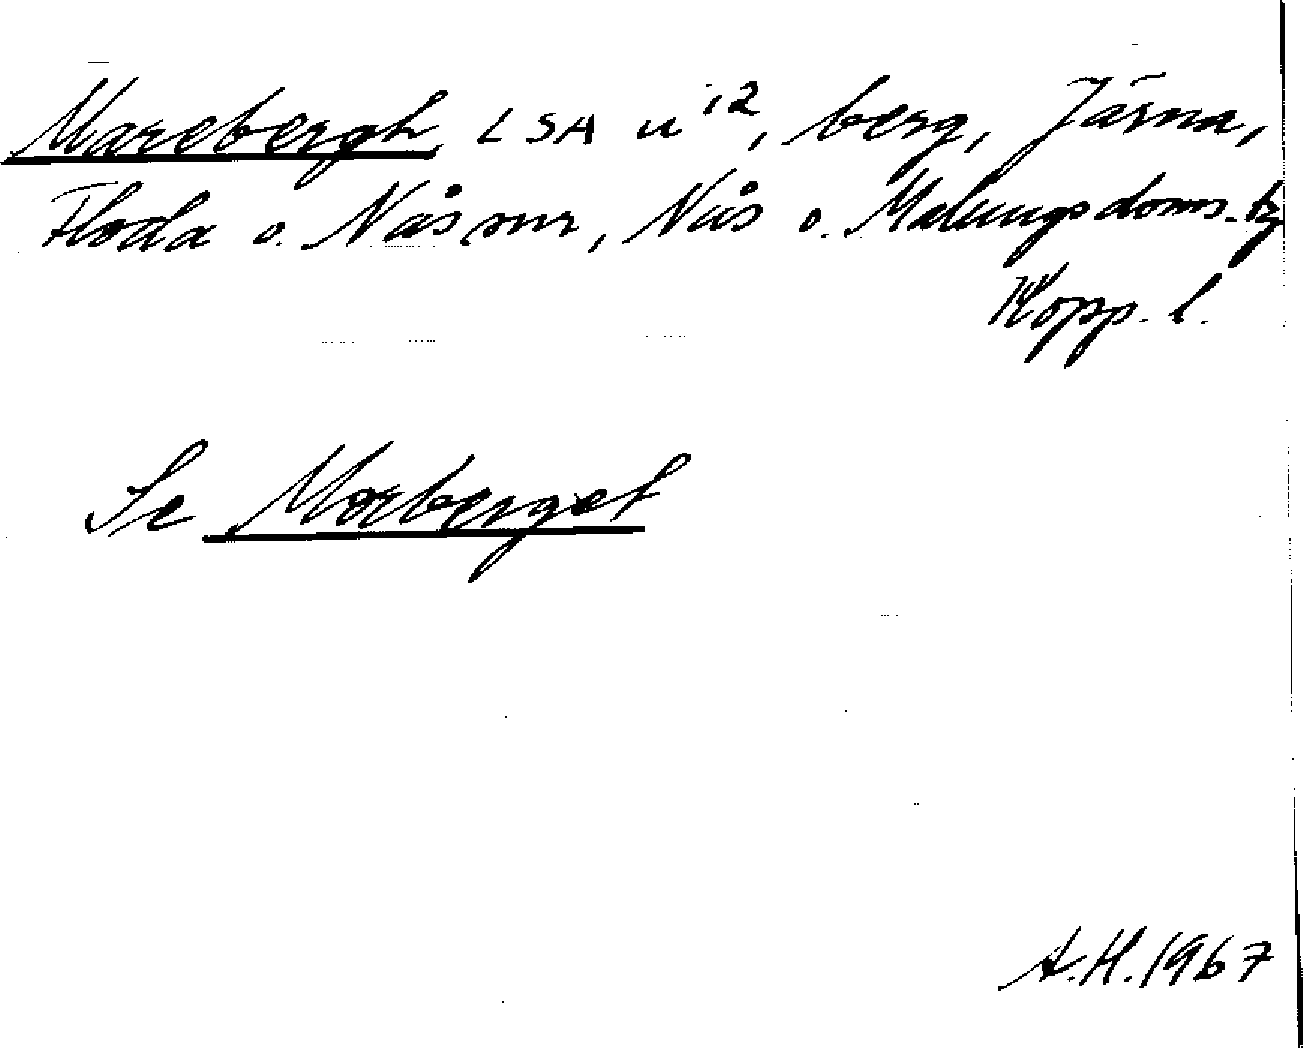 Marebergh, LSA u 12, berg, Järna,
Floda o. Nås snr, Nås o. Malungs doms. tg
Kopp. l.
Se Morberget
A.H. 1967